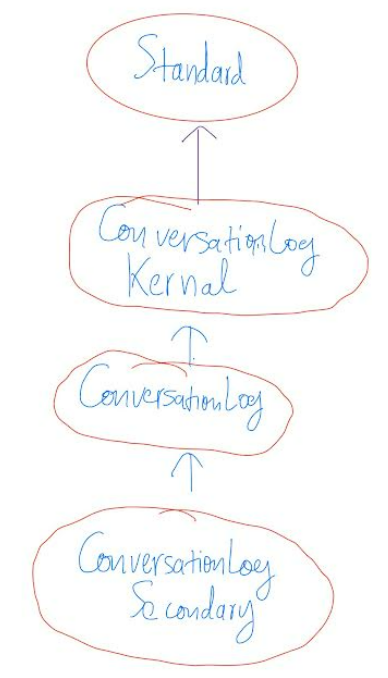 Standard
ConversationLog
Kernal
ConversationLog
ConversationLog
Secondary